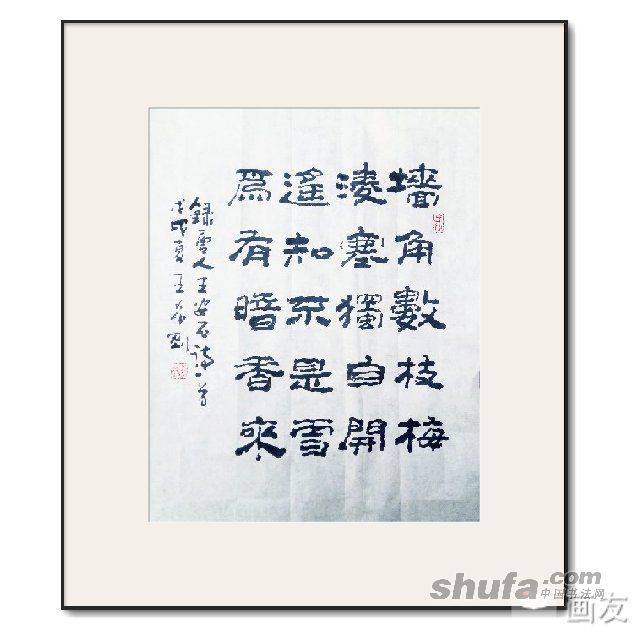 墻角數枝梅
淩寒獨自開
遙知不是雪
爲有暗香來
録宋人王安石詩一首
戊戌夏王
shufa.com
中国书法网
画友